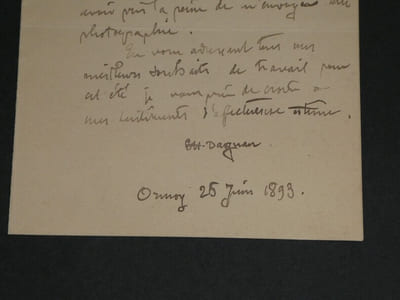 avoir pris la peine de m'envoyer une
photographie.
En vous adressant tous mes
meilleurs souhaits de travail pour
cet été je vous prie de croire à
mes sentiments d'affectueuse estime.
Dagnan
Ormoy 25 Juin 1893.